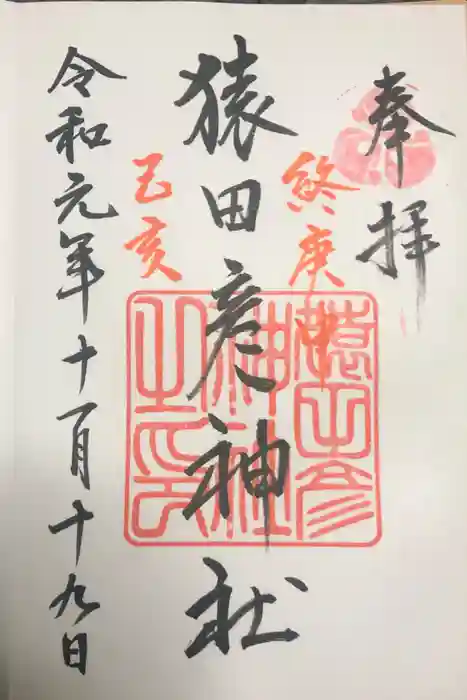 奉拝
終庚申
猿田彦神社
己亥
令和元年十一月十九日
猿田彦
神社
之印